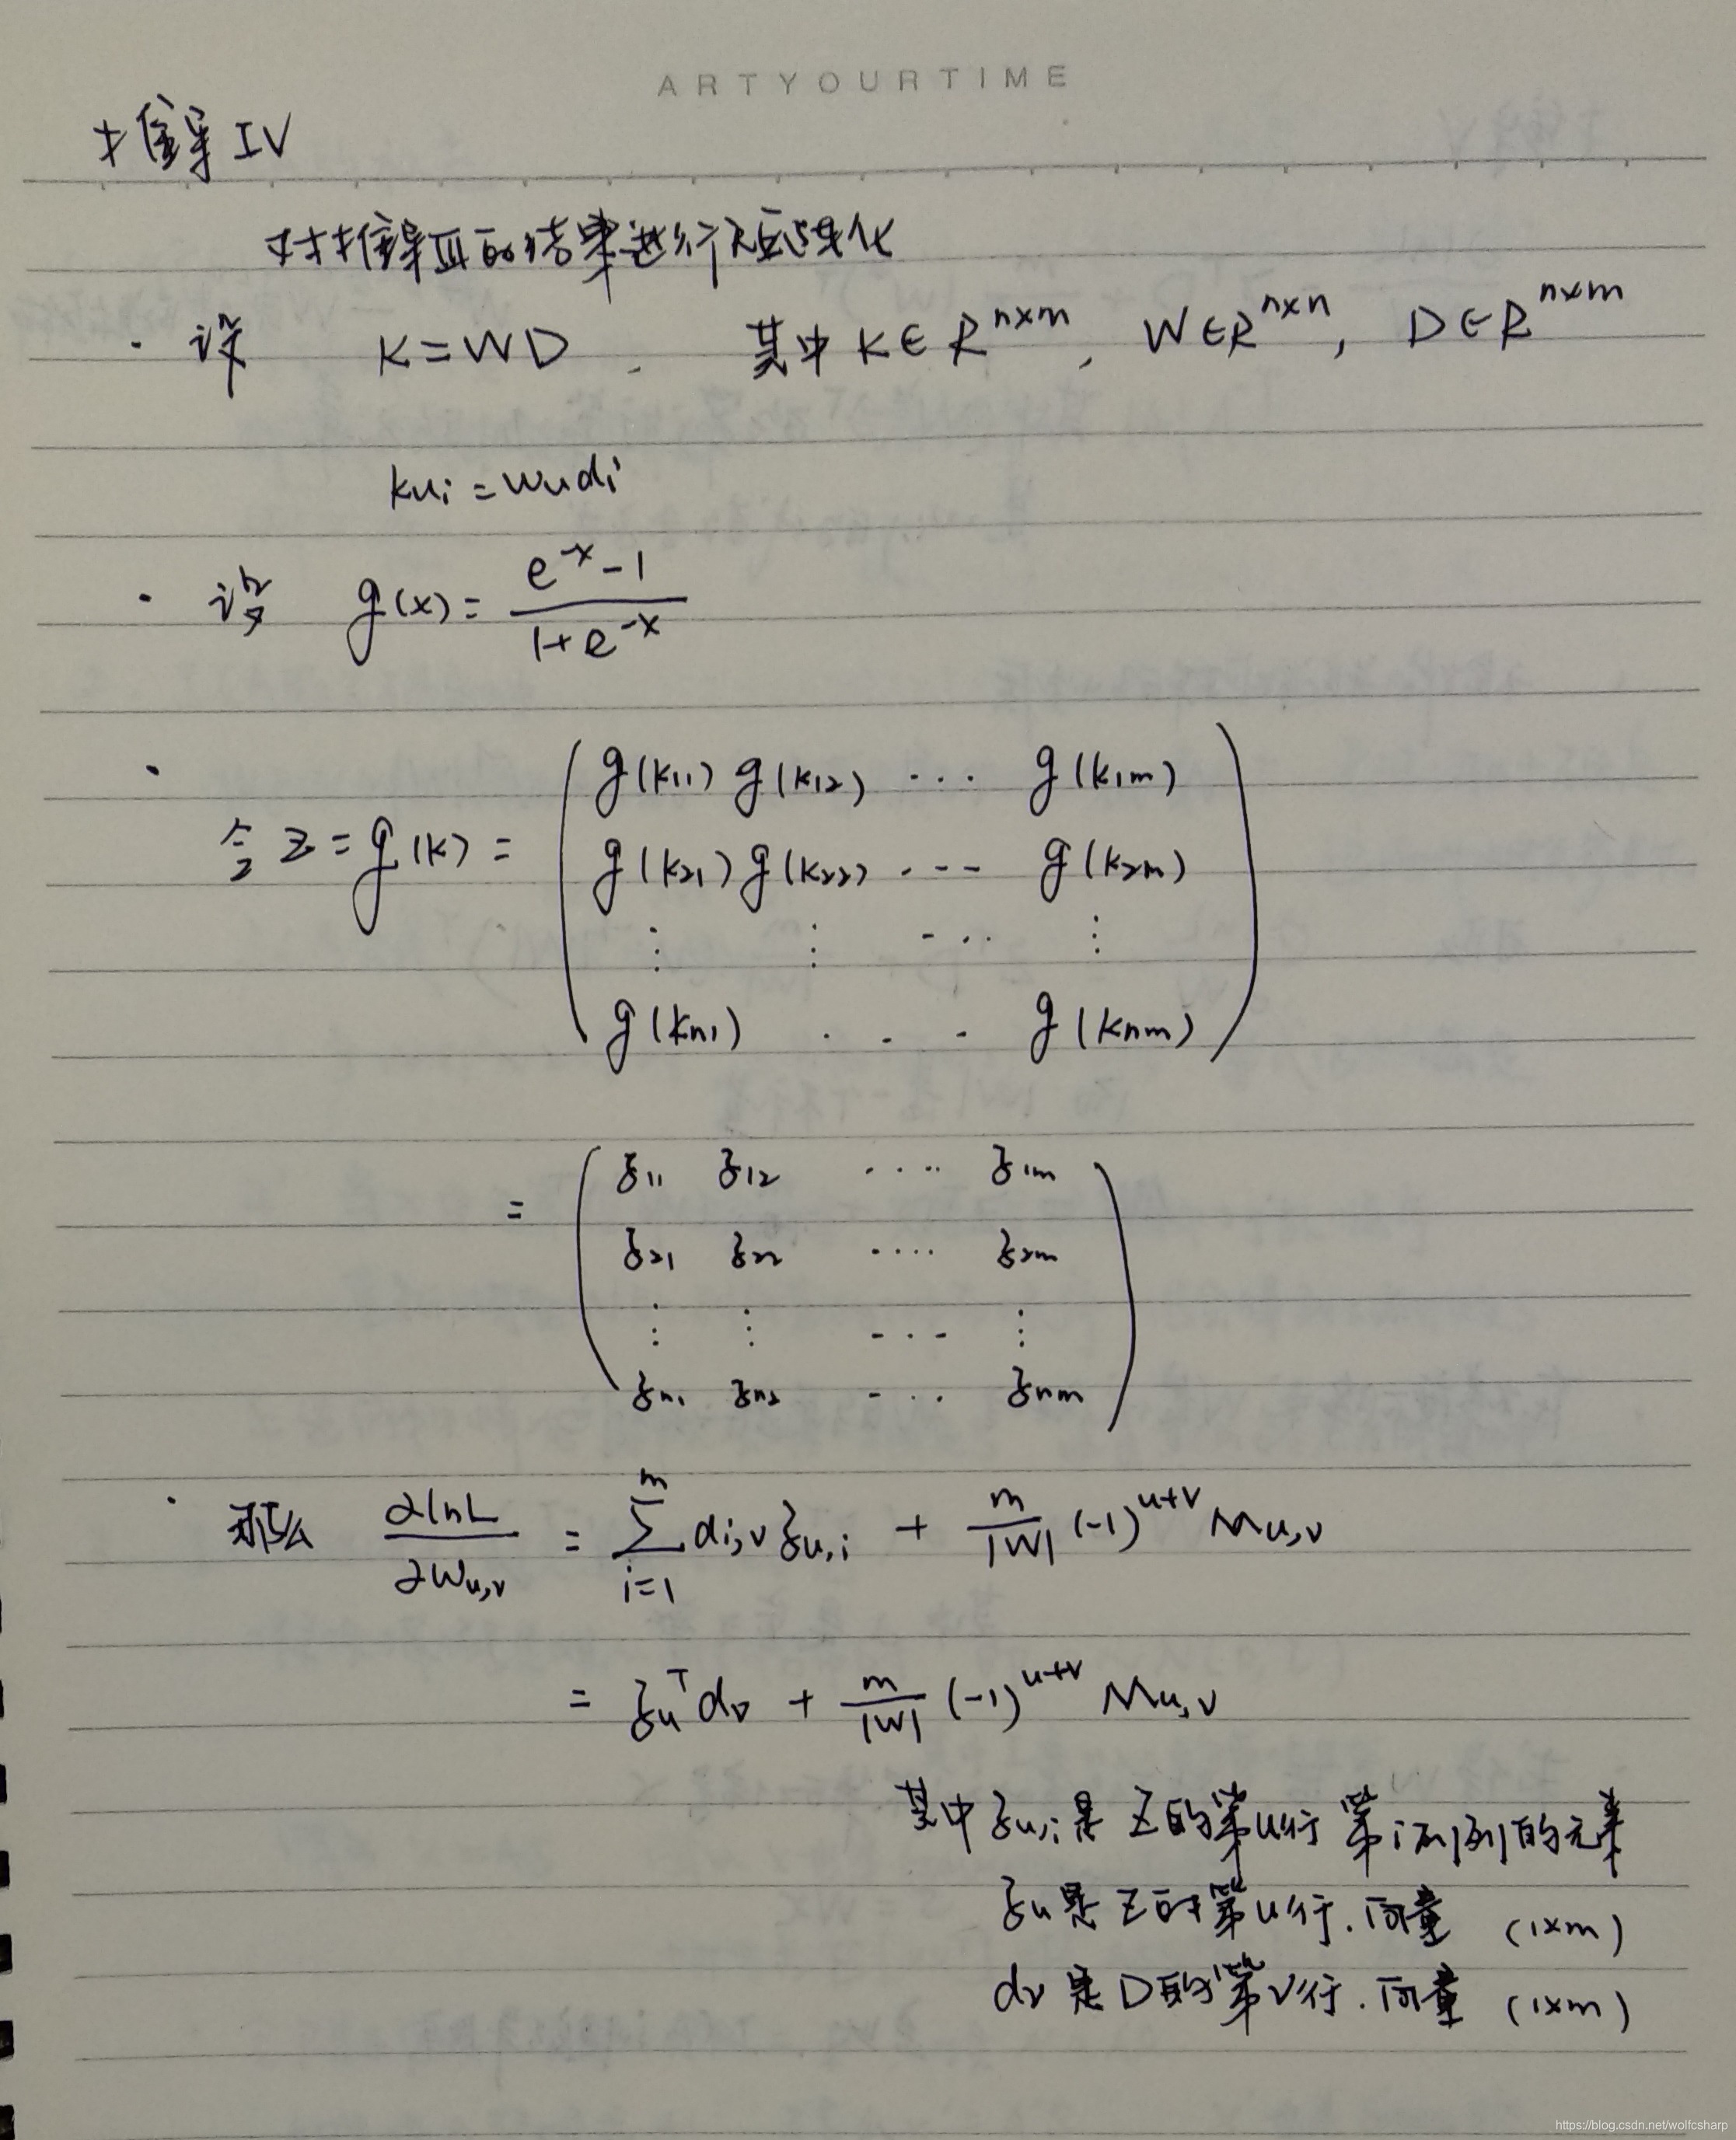 ARTYOURTIME
推导 IV
对推导III的结果进行矩阵化
· 设 K=WD 其中 K∈R^{n×m}, W∈R^{n×n}, D∈R^{n×m}
k_{ui}=w_u d_i
· 设 g(x)= (e^{-x}-1)/(1+e^{-x})
g(k_{11}) g(k_{12}) ··· g(k_{1m})
· 令 Z=g(K)= g(k_{21}) g(k_{22}) ··· g(k_{2m})
⋮ ⋮ ··· ⋮
g(k_{n1}) · · · g(k_{nm})
= z_{11} z_{12} ···· z_{1m}
z_{21} z_{22} ···· z_{2m}
⋮ ⋮ ···· ⋮
z_{n1} z_{n2} ··· z_{nm}
· 那么 ∂lnL/∂w_{u,v} = ∑_{i=1}^{m} d_{i,v} z_{u,i} + m/|W| (-1)^{u+v} M_{u,v}
= z_u^T d_v + m/|W| (-1)^{u+v} M_{u,v}
其中 z_{u,i} 是 Z 的第u行 第i列的元素
z_u 是 Z 的第u行.向量 (1×m)
d_v 是 D 的第v行.向量 (1×m)
https://blog.csdn.net/wolfcsharp